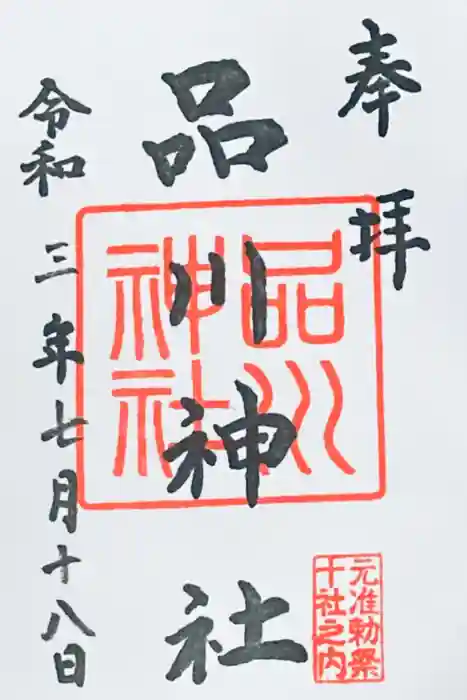 奉拝
品川神社
品川
神社
元准勅祭
十社之内
令和三年七月十八日